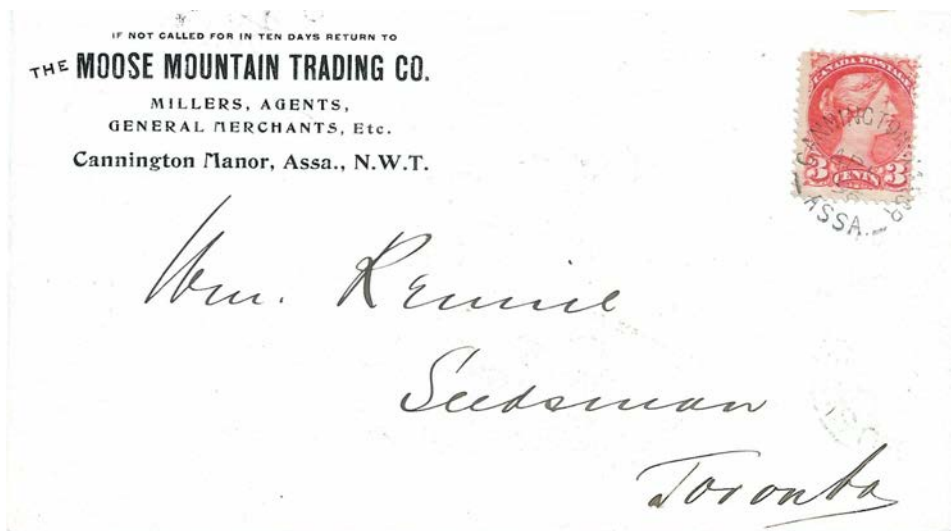 IF NOT CALLED FOR IN TEN DAYS RETURN TO
THE MOOSE MOUNTAIN TRADING CO.
MILLERS, AGENTS,
GENERAL MERCHANTS, Etc.
Cannington Manor, Assa., N.W.T.
CANADA POSTAGE
3 CENTS 3
CANNINGTON MANOR
ASSA.
Wm. Rennie
Seedsman
Toronto